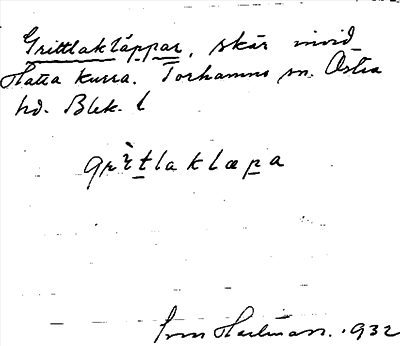 Grittlakläppar, skär invid
Hatta kurra. Torhamns sn. Östra
hd. Blek. l
gritlaklæpa
Sven Hartman. 1932